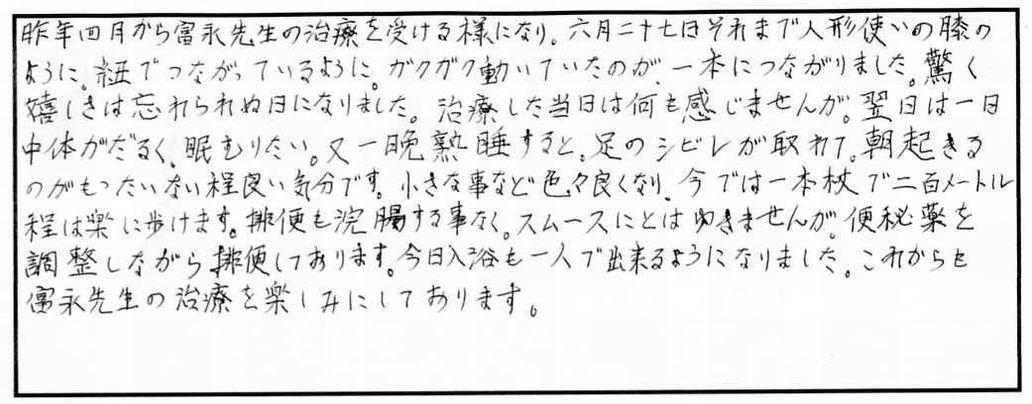 昨年四月から富永先生の治療を受ける様になり。六月二十七日それまで人形使いの膝の
ように。紐でつながっているように。ガクガク動いていたのが、一本につながりました。驚く
嬉しさは忘れられぬ日になりました。治療した当日は何も感じませんが。翌日は一日
中体がだるく、眠むりたい。又一晩熟睡すると、足のシビレが取れて。朝起きる
のがもったいない程良い気分です。小さな事など色々良くなり、今では一本杖で二百メートル
程は楽に歩けます。排便も浣腸する事なく。スムースにとはゆきませんが。便秘薬を
調整しながら排便しております。今日入浴も一人で出来るようになりました。これからも
富永先生の治療を楽しみにしております。